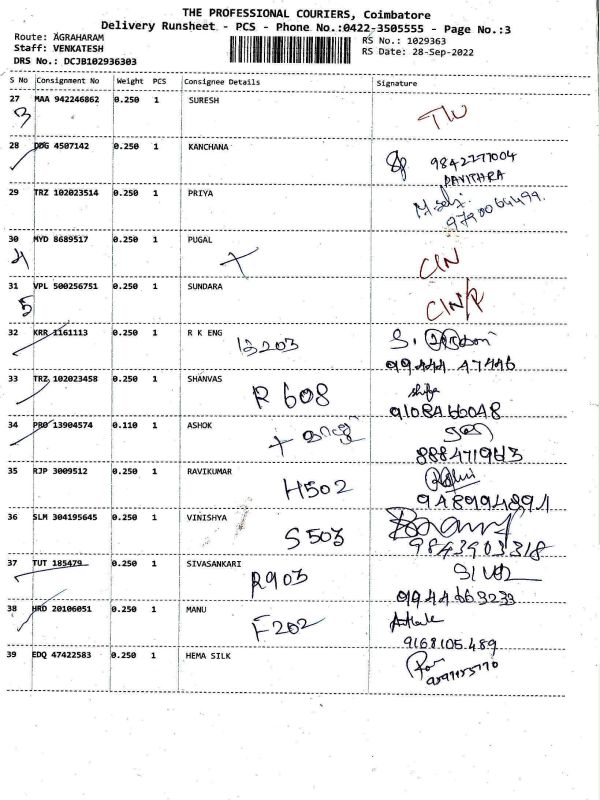 THE PROFESSIONAL COURIERS, Coimbatore
Delivery Runsheet - PCS - Phone No.:0422-3505555 - Page No.:3
Route: AGRAHARAM
RS No.: 1029363
Staff: VENKATESH
RS Date: 28-Sep-2022
DRS No.: DCJB102936303
S No Consignment No Weight PCS Consignee Details Signature
27 MAA 942246862 0.250 1 SURESH
3
28 DDG 4507142 0.250 1 KANCHANA
9842277004
PAVITHRA
29 TRZ 102023514 0.250 1 PRIYA
30 MYD 8689517 0.250 1 PUGAL
4 CIN
31 VPL 500256751 0.250 1 SUNDARA
5 CIN/R
32 KRR 1161113 0.250 1 R K ENG
B203
99444 47446
33 TRZ 102023458 0.250 1 SHANVAS
R 608
9108466048
34 PRO 13904574 0.110 1 ASHOK
35 RJP 3009512 0.250 1 RAVIKUMAR
H502
9489994891
36 SLM 304195645 0.250 1 VINISHYA
S 503
9843903318
37 TUT 185479 0.250 1 SIVASANKARI
R903
9944663239
38 HRD 20106051 0.250 1 MANU
F202
9168105489
39 EDQ 47422583 0.250 1 HEMA SILK